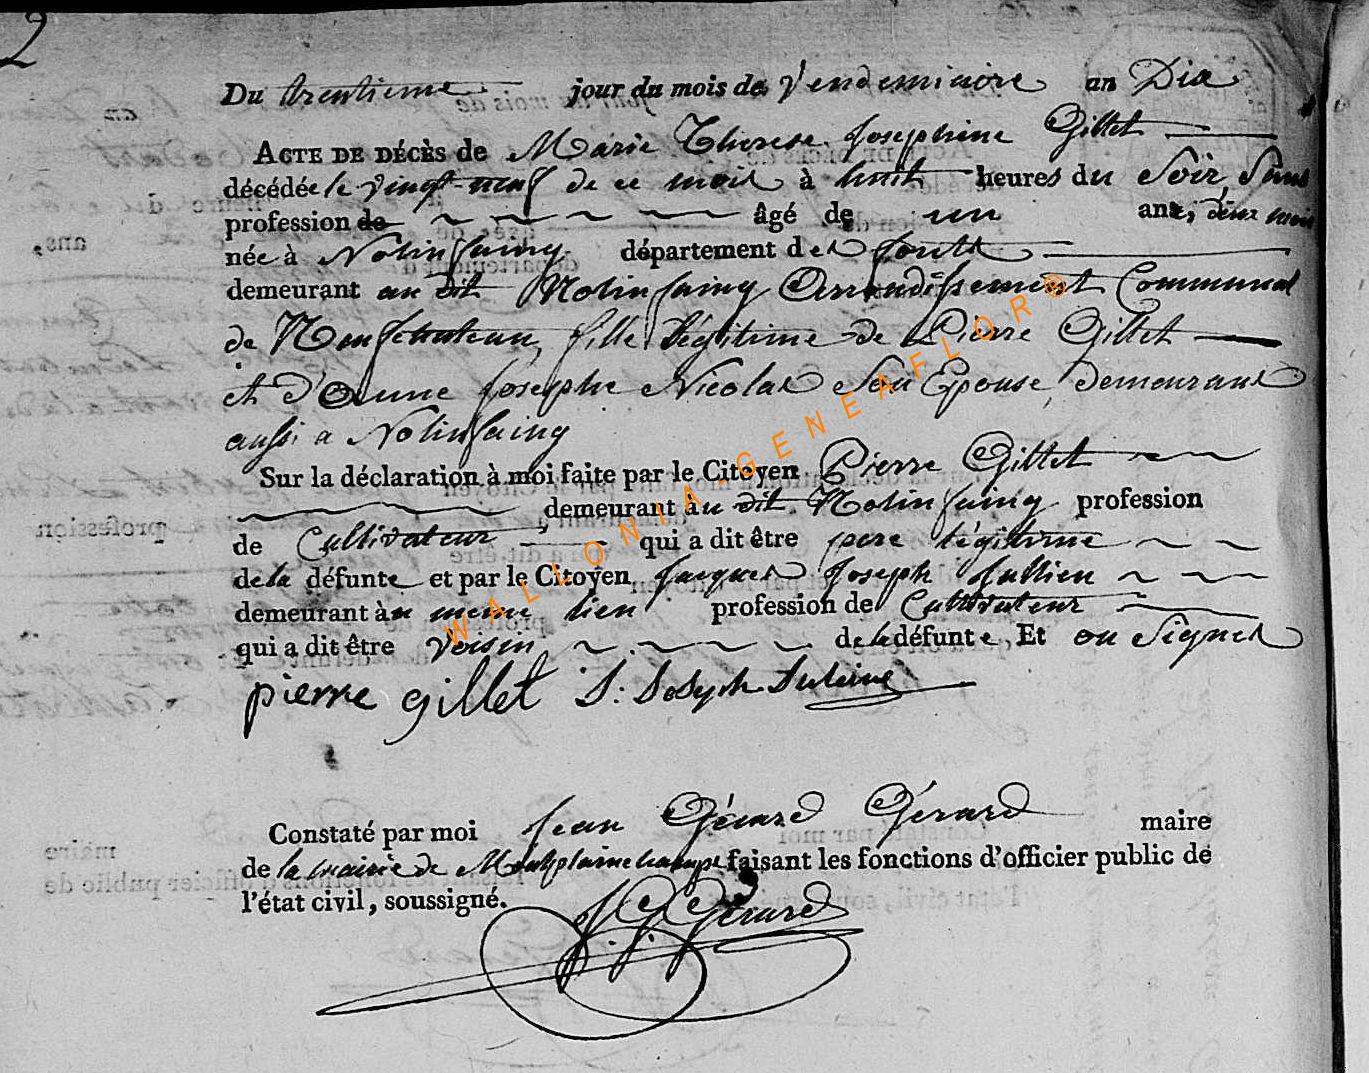 2
Du trentieme jour du mois de Vendemiaire an Dix
ACTE DE DÉCÈS de Marie Therese Josephine Gillet
décédée le vingt-neuf de ce mois à huit heures du Soir, Sans
profession de âgé de un ans, deux mois
née à Nolinfaing département des forets
demeurant au dit Nolinfaing Arrondissement Communal
de Neufchateau, fille légitime de Pierre Gillet
et d'Anne Josephe Nicolas Son Epouse, demeurant
aussi a Nolinfaing
Sur la déclaration à moi faite par le Citoyen Pierre Gillet
demeurant àu dit Nolinfaing profession
de Cultivateur qui a dit être pere légitime
de la défunte et par le Citoyen Jacques Joseph Jullien
demeurant àu meme lieu profession de Cultivateur
qui a dit être Voisin de la défunte. Et ont Signés
pierre gillet J. Joseph
Constaté par moi Jean Gérard Gérard maire
de la mairie de faisant les fonctions d'officier public de
l'état civil, soussigné.
J. G. Gérard
WALLONIA-GENEAFLOR©